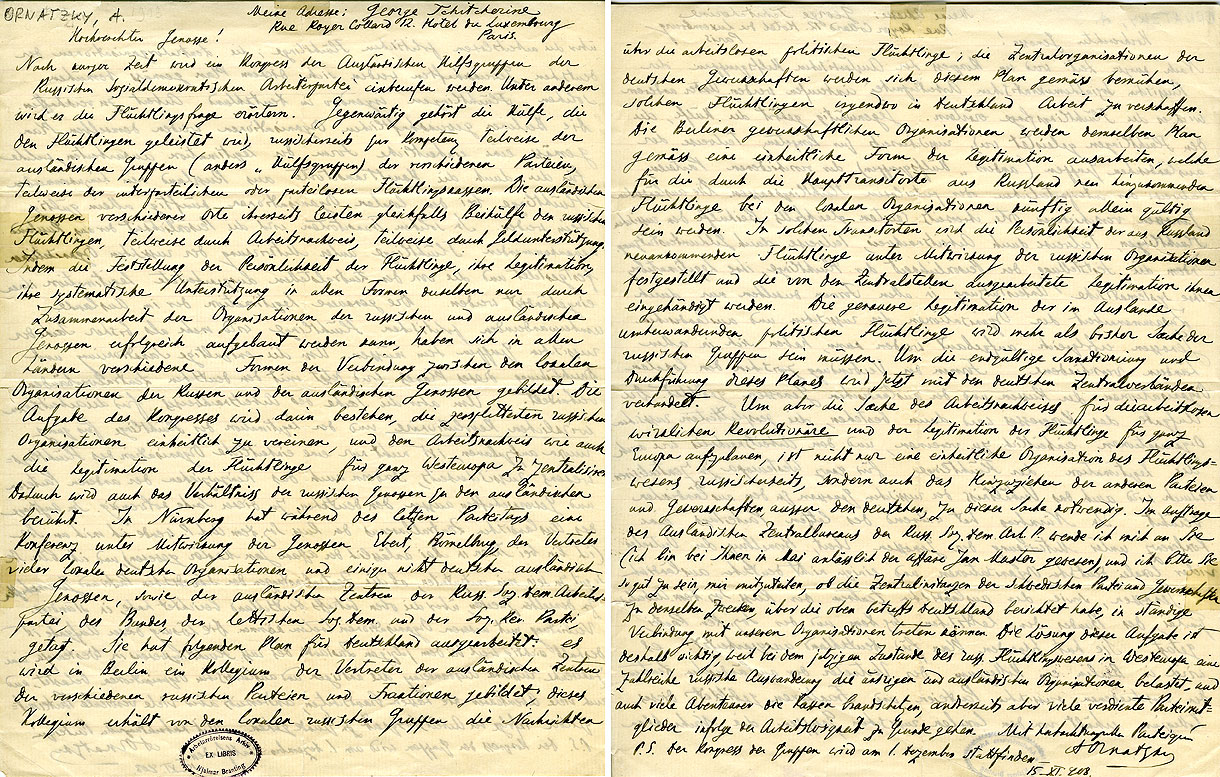 ORNATZKY, A.
Meine Adresse: George Tchitcherine
Rue Royer Collard 12. Hotel du Luxembourg
Paris.
Hochverehrter Genosse!
Nach kurzer Zeit wird ein Kongress der Ausländischen Hilfsgruppen der
Russischen Sozialdemokratischen Arbeiterpartei einberufen werden. Unter anderem
wird er die Flüchtlingsfrage erörtern. Gegenwärtig gehört die Hülfe, die
den Flüchtlingen geleistet wird, russischerseits zur Kompetenz teilweise der
ausländischen Gruppen (anders „Hülfsgruppen) der verschiedenen Parteien,
teilweise der interparteilichen oder parteilosen Flüchtlingskassen. Die ausländischen
Genossen verschiedener Orte ihrerseits leisten gleichfalls Beihülfe den russischen
Flüchtlingen, teilweise durch Arbeitsnachweis, teilweise durch Geldunterstützung.
Indem die Feststellung der Persönlichkeit der Flüchtlinge, ihre Legitimation,
ihre systematische Unterstützung in allen Formen derselben nur durch
Zusammenarbeit der Organisationen der russischen und ausländischen
Genossen erfolgreich aufgebaut werden kann, haben sich in allen
Ländern verschiedene Formen der Verbindung zwischen den lokalen
Organisationen der Russen und der ausländischen Genossen gebildet. Die
Aufgabe des Kongresses wird darin bestehen, die zersplitterten russischen
Organisationen einheitlich zu vereinen, und den Arbeitsnachweis wie auch
die Legitimation der Flüchtlinge für ganz Westeuropa zu zentralisieren.
Dadurch wird auch das Verhältniss der russischen Genossen zu den ausländischen
berührt. In Nürnberg hat während des letzten Parteitags eine
Konferenz unter Mitwirkung der Genossen Ebert, Bömelburg, der Vertreter
vieler lokaler deutschen Organisationen und einiger nicht deutschen ausländisch
Genossen, sowie der ausländischen Zentren der Russ. Soz. Dem. Arbeiter
partei, des Bundes, der lettischen Soz. Dem. und der Soz. Rev. Partei,
getagt. Sie hat folgenden Plan für Deutschland ausgearbeitet: es
wird in Berlin ein Kollegium der Vertreter der ausländischen Zentren
der verschiedenen russischen Parteien und Fraktionen gebildet; dieses
Kollegium erhält von den lokalen russischen Gruppen die Nachrichten
Arbetarrörelsens Arkiv
EX LIBRIS
Hjalmar Branting
über die arbeitslosen politischen Flüchtlinge; die Zentralorganisationen der
deutschen Gewerkschaften werden sich diesem Plan gemäss bemühen,
solchen Flüchtlingen irgendwo in Deutschland Arbeit zu verschaffen.
Die Berliner gewerkschaftlichen Organisationen werden demselben Plan
gemäss eine einheitliche Form der Legitimation ausarbeiten, welche
für die durch die Haupttransitorte aus Russland neu hinzukommenden
Flüchtlinge bei den lokalen Organisationen künftig allein gültig
sein werden. In solchen Transitorten wird die Persönlichkeit der aus Russland
neuankommenden Flüchtlinge unter Mitwirkung der russischen Organisationen
festgestellt und die von den Zentralstellen ausgearbeitete Legitimation ihnen
eingehändigt werden. Die genauere Legitimation der im Auslande
umherwandernden politischen Flüchtlinge wird mehr als bisher Sache der
russischen Gruppen sein müssen. Um die endgültige Sanktionierung und
Durchführung dieses Planes wird jetzt mit den deutschen Zentralverbänden
verhandelt. Um aber die Sache des Arbeitsnachweises für die arbeitslosen
wirklichen Revolutionäre und der Legitimation der Flüchtlinge für ganz
Europa aufzubauen, ist nicht nur eine einheitliche Organisation des Flüchtlings-
wesens russischerseits, sondern auch das Hinzuziehen der anderen Parteien
und Gewerkschaften, ausser den deutschen, zu dieser Sache notwendig. Im Auftrage
des Ausländischen Zentralbureaus der Russ. Soz. dem. Arb. P. wende ich mich an Sie
(ich bin bei Ihnen in Mai anlässlich der Affäre Jan Master gewesen) und ich bitte Sie
so gut zu sein, mir mitzuteilen, ob die Zentralinstanzen der schwedischen Partei und Gewerkschaften
zu denselben Zwecken, über die oben betreffs Deutschland berichtet habe, in ständige
Verbindung mit unseren Organisationen treten können. Die Lösung dieser Aufgabe ist
deshalb wichtig weil bei dem jetzigen Zustande des russ. Flüchtlingswesens in Westeuropa eine
zahlreiche russische Auswanderung die dortigen und ausländischen Organisationen belastet, und
auch viele Abenteurer die Kassen brandschatzen, anderseits aber viele verdiente Parteimit-
glieder infolge der Arbeitslosigkeit zu Grunde gehen. Mit
P.S. Der Kongress der Gruppen wird am 1. Dezember stattfinden. A Ornatzky
15. XI. 1908.